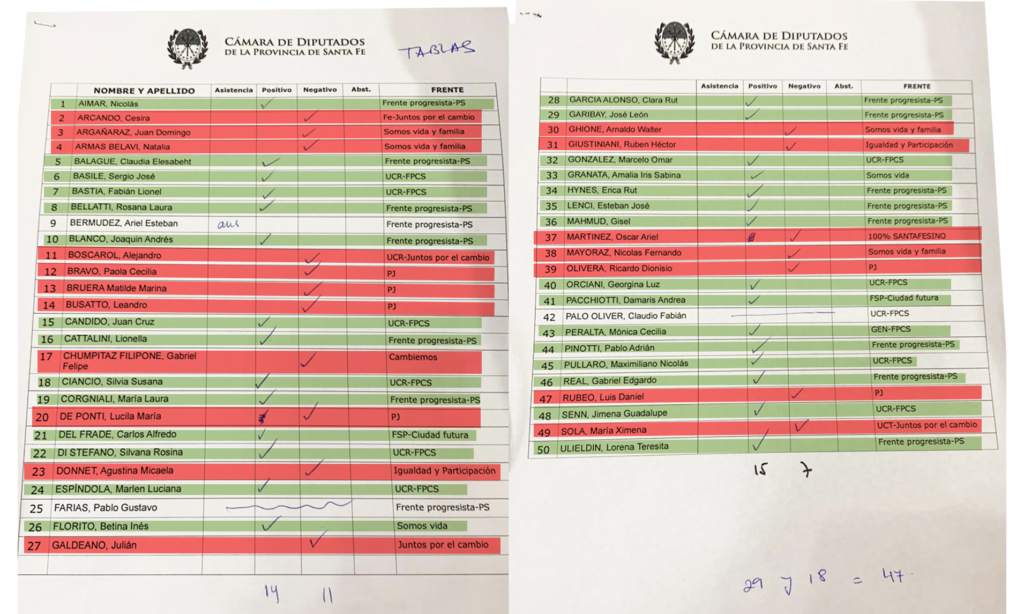 CÁMARA DE DIPUTADOS
DE LA PROVINCIA DE SANTA FE
TABLAS
NOMBRE Y APELLIDO Asistencia Positivo Negativo Abst. FRENTE
1 AIMAR, Nicolás ✓ Frente progresista-PS
2 ARCANDO, Cesira ✓ Fe-Juntos por el cambio
3 ARGAÑARAZ, Juan Domingo ✓ Somos vida y familia
4 ARMAS BELAVI, Natalia ✓ Somos vida y familia
5 BALAGUE, Claudia Elesabeht ✓ Frente progresista-PS
6 BASILE, Sergio José ✓ UCR-FPCS
7 BASTIA, Fabián Lionel ✓ UCR-FPCS
8 BELLATTI, Rosana Laura ✓ Frente progresista-PS
9 BERMUDEZ, Ariel Esteban aus Frente progresista-PS
10 BLANCO, Joaquin Andrés ✓ Frente progresista-PS
11 BOSCAROL, Alejandro ✓ UCR-Juntos por el cambio
12 BRAVO, Paola Cecilia ✓ PJ
13 BRUERA Matilde Marina ✓ PJ
14 BUSATTO, Leandro ✓ PJ
15 CANDIDO, Juan Cruz ✓ UCR-FPCS
16 CATTALINI, Lionella ✓ Frente progresista-PS
17 CHUMPITAZ FILIPONE, Gabriel ✓ Cambiemos
Felipe
18 CIANCIO, Silvia Susana ✓ UCR-FPCS
19 CORGNIALI, María Laura ✓ Frente progresista-PS
20 DE PONTI, Lucila María ✓ PJ
21 DEL FRADE, Carlos Alfredo ✓ FSP-Ciudad futura
22 DI STEFANO, Silvana Rosina ✓ UCR-FPCS
23 DONNET, Agustina Micaela ✓ Igualdad y Participación
24 ESPÍNDOLA, Marlen Luciana ✓ UCR-FPCS
25 FARIAS, Pablo Gustavo Frente progresista-PS
26 FLORITO, Betina Inés ✓ Somos vida
27 GALDEANO, Julián ✓ Juntos por el cambio
14 11
CÁMARA DE DIPUTADOS
DE LA PROVINCIA DE SANTA FE
Asistencia Positivo Negativo Abst. FRENTE
28 GARCIA ALONSO, Clara Rut ✓ Frente progresista-PS
29 GARIBAY, José León ✓ Frente progresista-PS
30 GHIONE, Arnaldo Walter ✓ Somos vida y familia
31 GIUSTINIANI, Ruben Héctor ✓ Igualdad y Participación
32 GONZALEZ, Marcelo Omar ✓ UCR-FPCS
33 GRANATA, Amalia Iris Sabina ✓ Somos vida
34 HYNES, Erica Rut ✓ Frente progresista-PS
35 LENCI, Esteban José ✓ Frente progresista-PS
36 MAHMUD, Gisel ✓ Frente progresista-PS
37 MARTINEZ, Oscar Ariel ✓ 100% SANTAFESINO
38 MAYORAZ, Nicolas Fernando ✓ Somos vida y familia
39 OLIVERA, Ricardo Dionisio ✓ PJ
40 ORCIANI, Georgina Luz ✓ UCR-FPCS
41 PACCHIOTTI, Damaris Andrea ✓ FSP-Ciudad futura
42 PALO OLIVER, Claudio Fabián UCR-FPCS
43 PERALTA, Mónica Cecilia ✓ GEN-FPCS
44 PINOTTI, Pablo Adrián ✓ Frente progresista-PS
45 PULLARO, Maximiliano Nicolás ✓ UCR-FPCS
46 REAL, Gabriel Edgardo ✓ Frente progresista-PS
47 RUBEO, Luis Daniel ✓ PJ
48 SENN, Jimena Guadalupe ✓ UCR-FPCS
49 SOLA, María Ximena ✓ UCT-Juntos por el cambio
50 ULIELDIN, Lorena Teresita ✓ Frente progresista-PS
15 7
29 y 18 = 47